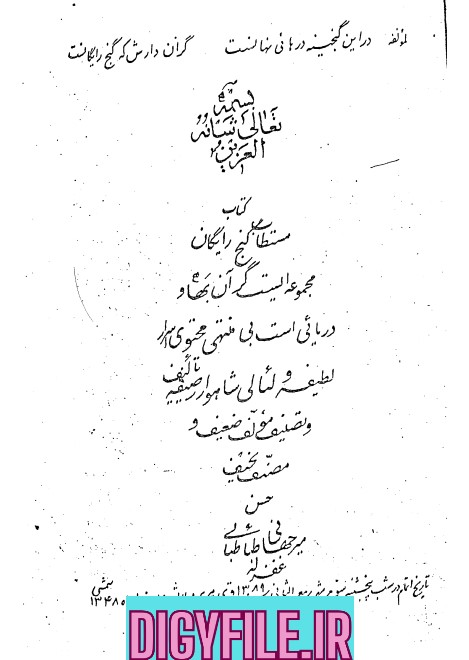 لمؤلفه در این گنجینه درهائی نهانست گران دارش که گنج رایگانست
بسمه
تعالی شانه
العزیز
کتاب
مستطاب گنج رایگان
مجموعه ایست گرآن بها و
دریائی است بی منتهی محتوی اسرار
لطیفه و لئالی شاهوار تألیف
و تصنیف مؤلف ضعیف و
مصنف نحیف
حسن
میرجهانی طباطبائی
غفرله
تاریخ اتمام در شب پنجشنبه ۱۳۸۹
شمسی ۱۳۴۸
DIGYFILE.IR